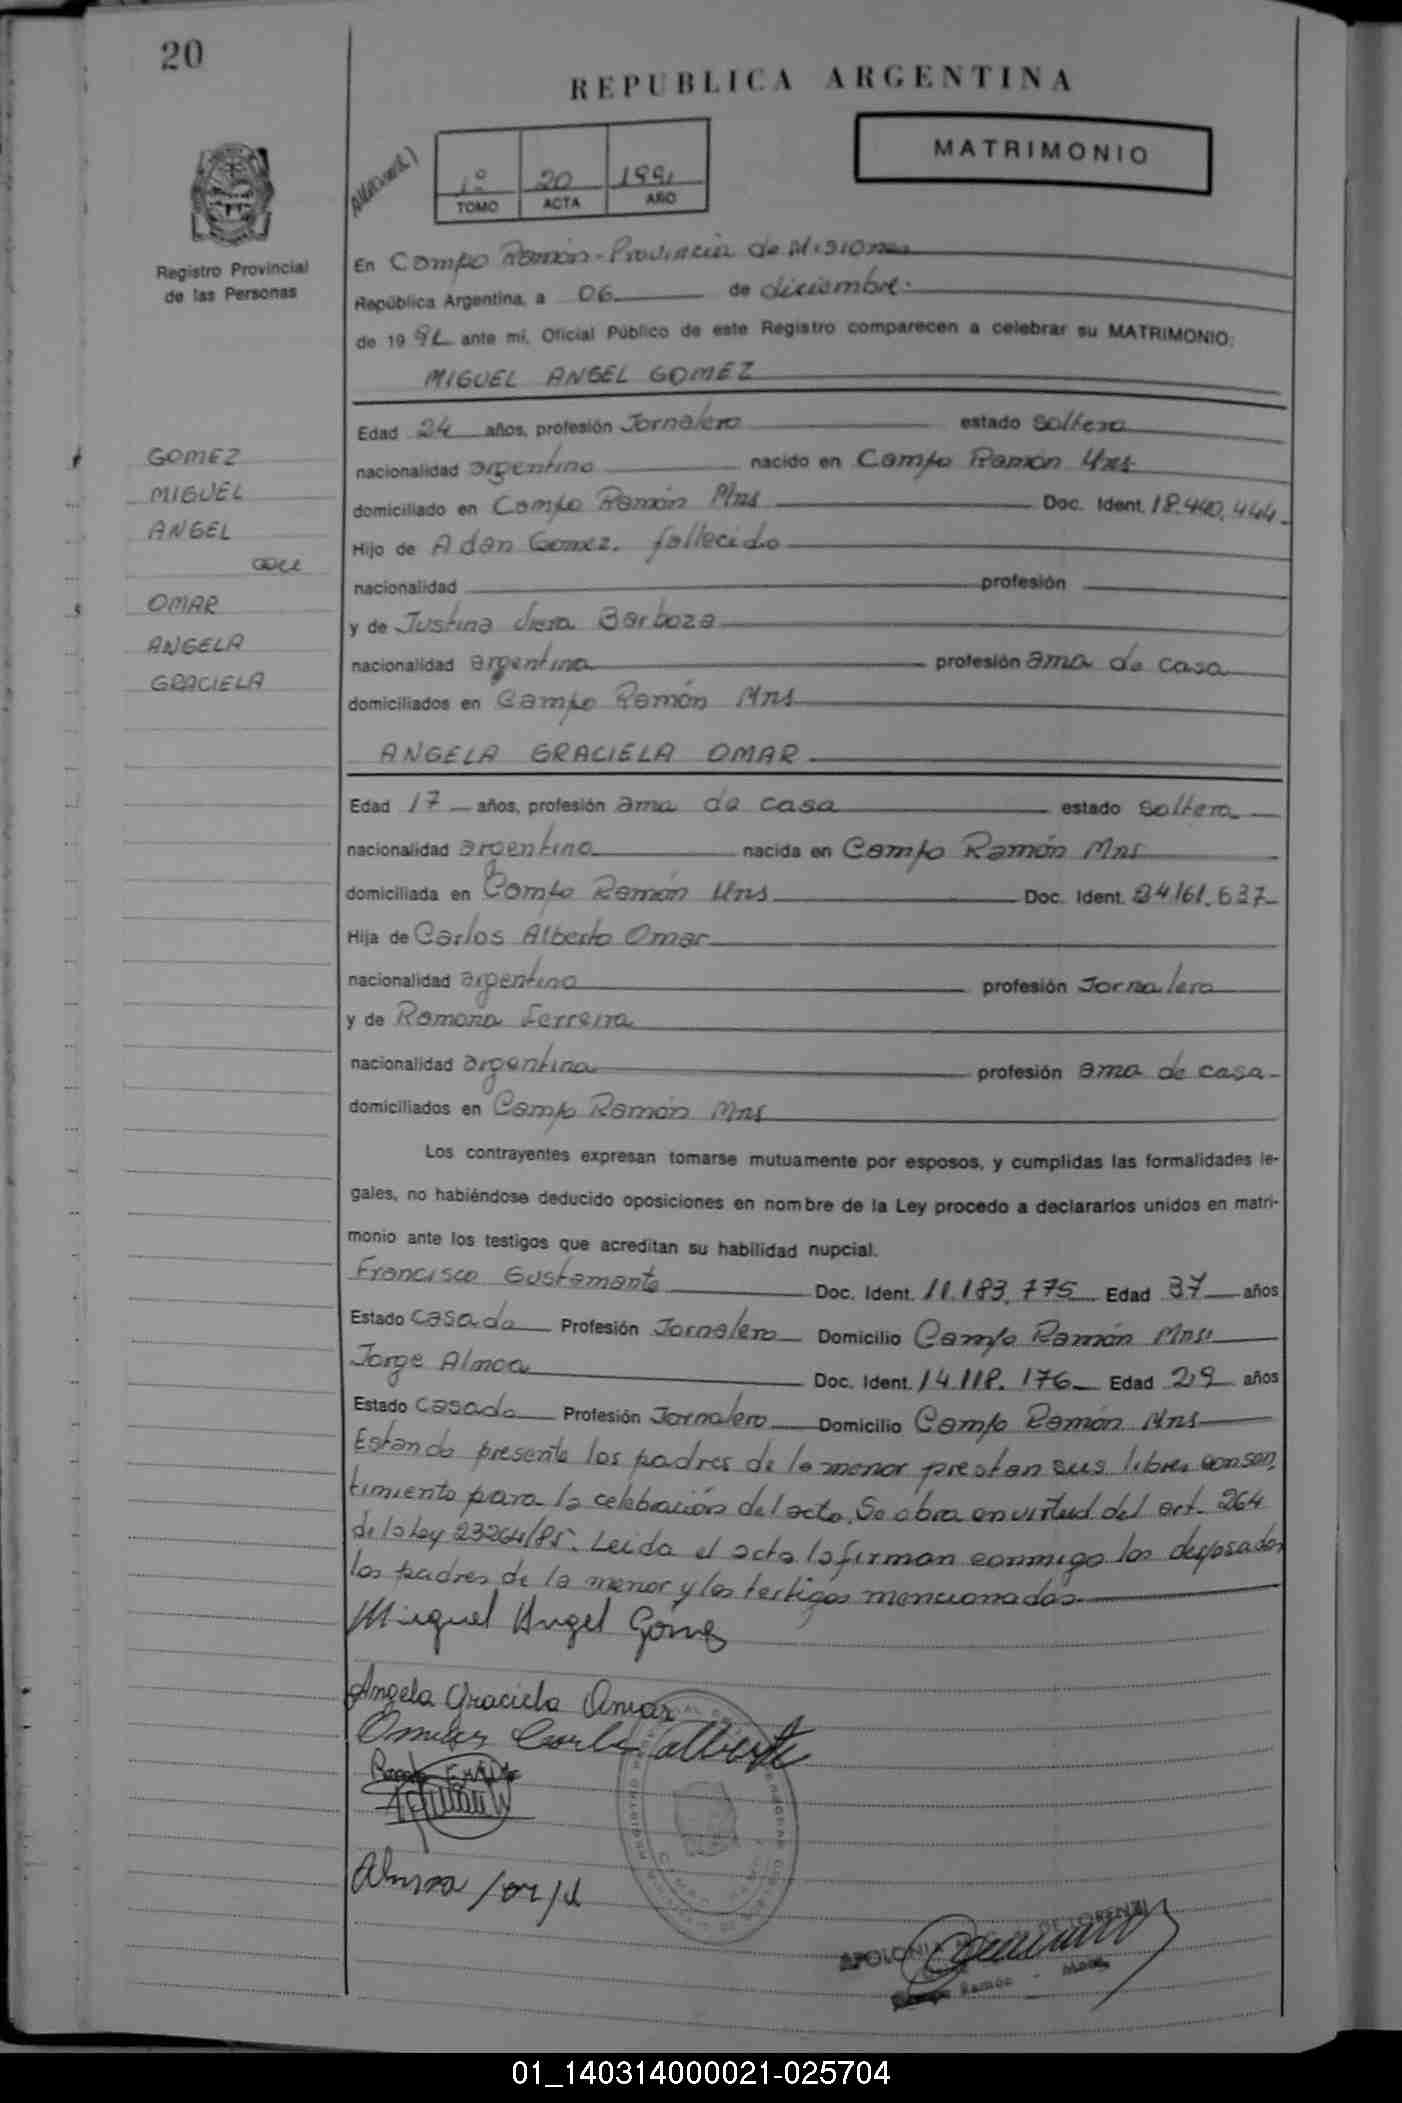 20
REPUBLICA ARGENTINA
MATRIMONIO
1º 20 1991
TOMO ACTA AÑO
Registro Provincial
de las Personas
En Campo Ramón - Provincia de Misiones
República Argentina, a 06 de diciembre.
de 19 91 ante mí, Oficial Público de este Registro comparecen a celebrar su MATRIMONIO:
MIGUEL ANGEL GOMEZ
Edad 24 años, profesión Jornalero estado Soltero
nacionalidad argentino nacido en Campo Ramón Mns
domiciliado en Campo Ramón Mns Doc. Ident. 18.440.444
Hijo de Adan Gomez. fallecido
nacionalidad profesión
y de Justina Viera Barboza
nacionalidad argentina profesión ama de casa
domiciliados en Campo Ramón Mns
ANGELA GRACIELA OMAR
Edad 17 años, profesión ama de casa estado Soltera
nacionalidad argentina nacida en Campo Ramón Mns
domiciliada en Campo Ramón Mns Doc. Ident. 24.161.637
Hija de Carlos Alberto Omar
nacionalidad argentino profesión Jornalero
y de Ramona Ferreira
nacionalidad argentina profesión ama de casa
domiciliados en Campo Ramón Mns
GOMEZ
MIGUEL
ANGEL
con
OMAR
ANGELA
GRACIELA
Los contrayentes expresan tomarse mutuamente por esposos, y cumplidas las formalidades le-
gales, no habiéndose deducido oposiciones en nombre de la Ley procedo a declararlos unidos en matri-
monio ante los testigos que acreditan su habilidad nupcial.
Francisco Gustamante Doc. Ident. 11.183.775 Edad 37 años
Estado Casado Profesión Jornalero Domicilio Campo Ramón Mns
Jorge Almoa Doc. Ident. 14.118.176 Edad 29 años
Estado Casado Profesión Jornalero Domicilio Campo Ramón Mns
Estando presente los padres de la menor prestan sus libres consen
timiento para la celebración del acto. Se obra en virtud del art. 264
de la ley 23264/85. Leida el acta la firman conmigo los desposados
los padres de la menor y los testigos mencionados
Miguel Angel Gómez
Angela Graciela Omar
Omar Carlos Alberto
Jorge
DE LORENZI
Ramón
01_140314000021-025704